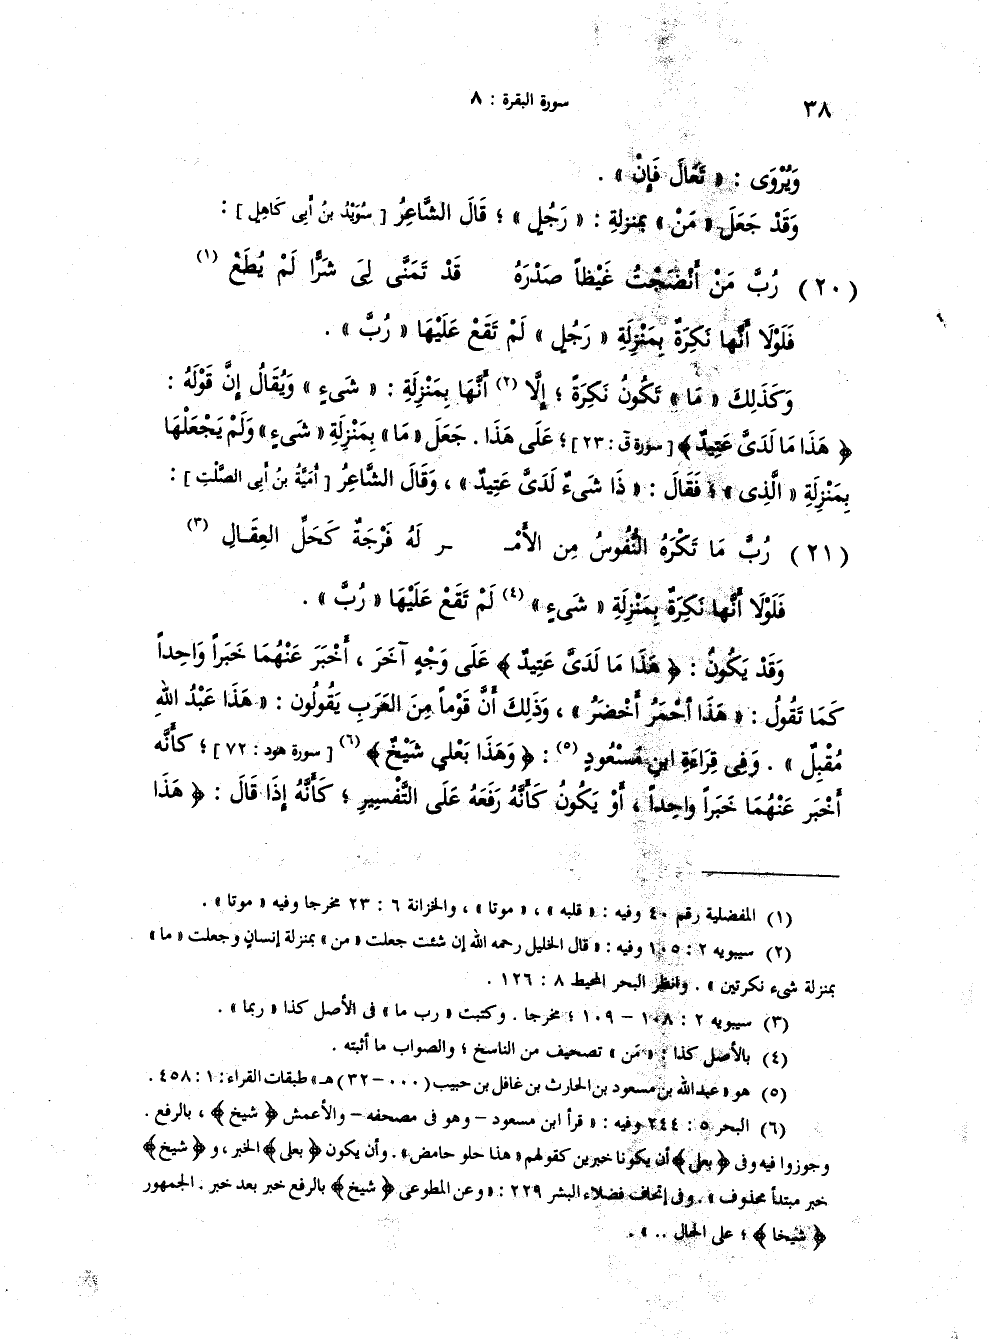 ٣٨
سورة البقرة : ٨
وَيُرْوَى : « تَعَالَ فَإِنْ » .
وَقَدْ جَعَلَ « مَنْ » بمنزلةِ : « رَجُلٍ » ؛ قَالَ الشَّاعِرُ [ سُوَيْدُ بنُ أبى كَاهِلٍ ] :
( ٢٠ ) رُبَّ مَنْ أَنْضَجْتُ غَيْظاً صَدْرَهُ قَدْ تَمَنَّى لِىَ شَرًّا لَمْ يُطَعْ (١)
فَلَوْلَا أَنَّها نَكِرَةٌ بِمَنْزِلَةِ « رَجُلٍ » لَمْ تَقَعْ عَلَيْهَا « رُبَّ » .
وَكَذَلِكَ « مَا » تَكُونُ نَكِرَةً ؛ إِلَّا (٢) أَنَّهَا بِمَنْزِلَةِ : « شَىءٍ » وَيُقَالُ إِنَّ قَوْلَهُ :
﴿ هَذَا مَا لَدَىَّ عَتِيدٌ ﴾ [ سورة قۤ : ٢٣ ] ؛ عَلَى هَذَا . جَعَلَ « مَا » بِمَنْزِلَةِ « شَىءٍ » وَلَمْ يَجْعَلْهَا
بِمَنْزِلَةِ « الَّذِى » ؛ فَقَالَ : « ذَا شَىءٌ لَدَىَّ عَتِيدٌ » ، وَقَالَ الشَّاعِرُ [ أمَيَّةُ بنُ أبى الصَّلْتِ ] :
( ٢١ ) رُبَّ مَا تَكْرَهُ النُّفُوسُ مِن الأَمْـ ـرِ لَهُ فَرْجَةٌ كَحَلِّ العِقَالِ (٣)
فَلَوْلَا أَنَّها نَكِرَةٌ بِمَنْزِلَةِ « شَىءٍ » (٤) لَمْ تَقَعْ عَلَيْهَا « رُبَّ » .
وَقَدْ يَكُونُ : ﴿ هَذَا مَا لَدَىَّ عَتِيدٌ ﴾ عَلَى وَجْهٍ آخَرَ ، أَخْبَرَ عَنْهُمَا خَبَراً وَاحِداً
كَمَا تَقُولُ : « هَذَا أَحْمَرُ أَخْضَرُ » ، وَذَلِكَ أَنَّ قَوْماً مِنَ العَرَبِ يَقُولُون : « هَذَا عَبْدُ اللهِ
مُقْبِلٌ » . وَفِى قِرَاءَةِ ابنِ مَسْعُودٍ (٥) : ﴿ وَهَذَا بَعْلي شَيْخٌ ﴾ (٦) [ سورة هود : ٧٢ ] ؛ كأَنَّه
أَخْبَر عَنْهُمَا خَبَراً واحِداً ، أَوْ يَكُونُ كَأَنَّهُ رَفَعَهُ عَلَى التَّفْسِيرِ ؛ كَأَنَّهُ إِذَا قَالَ : ﴿ هَذَا
(١) المفضلية رقم ٤٠ وفيه : « قلبه » ، « موتا » ، والخزانة ٦ : ٢٣ مخرجا وفيه « موتا » .
(٢) سيبويه ٢ : ١٠٥ وفيه : « قال الخليل رحمه الله إن شئت جعلت « من » بمنزلة إنسانٍ وجعلت « ما »
بمنزلة شىء نكرتين » . وانظر البحر المحيط ٨ : ١٢٦ .
(٣) سيبويه ٢ : ١٠٨ – ١٠٩ ؛ مخرجا . وكتبت « رب ما » فى الأصل كذا « ربما » .
(٤) بالأصل كذا : « مَن » تصحيف من الناسخ ؛ والصواب ما أثبته .
(٥) هو « عبدالله بن مسعود بن الحارث بن غافل بن حبيب ( ٠٠٠ – ٣٢ ) هـ » طبقات القراء : ١ : ٤٥٨ .
(٦) البحر ٥ : ٢٤٤ وفيه : « قرأ ابن مسعود – وهو فى مصحفه – والأعمش ﴿ شيخ ﴾ ، بالرفع .
وجوزوا فيه وفى ﴿ بعلى ﴾ أن يكونا خبرين كقولهم « هذا حلو حامض » . وأن يكون ﴿ بعلى ﴾ الخبر ، و ﴿ شيخ ﴾
خبر مبتدأ محذوف » . وفى إتحاف فضلاء البشر ٢٢٩ : « وعن المطوعى ﴿ شيخ ﴾ بالرفع خبر بعد خبر . الجمهور
﴿ شيخا ﴾ ؛ على الحال .. » .